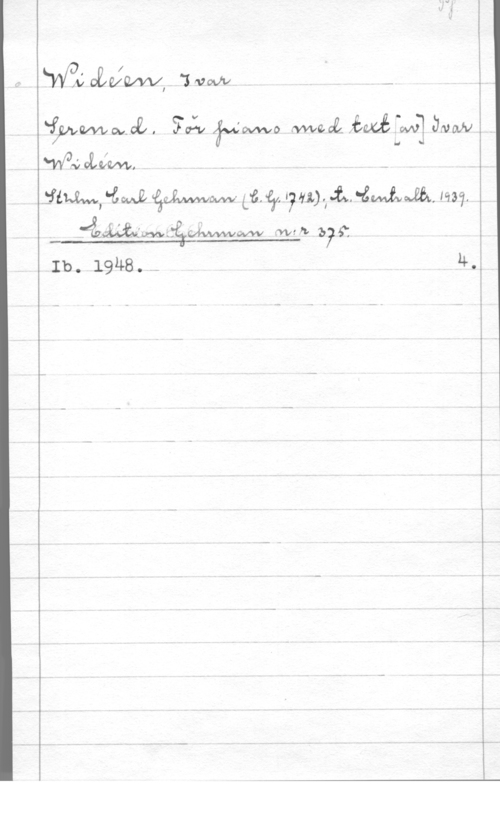 Widéen, Ivar
Serenad. För piano med text [av] Ivar
Widéen.
Sthlm, Carl Gehrman (C. G. 1742); tr. Centraltr. 1939.
Edition Gehrman n:r 375.
Ib. 1948. 4.